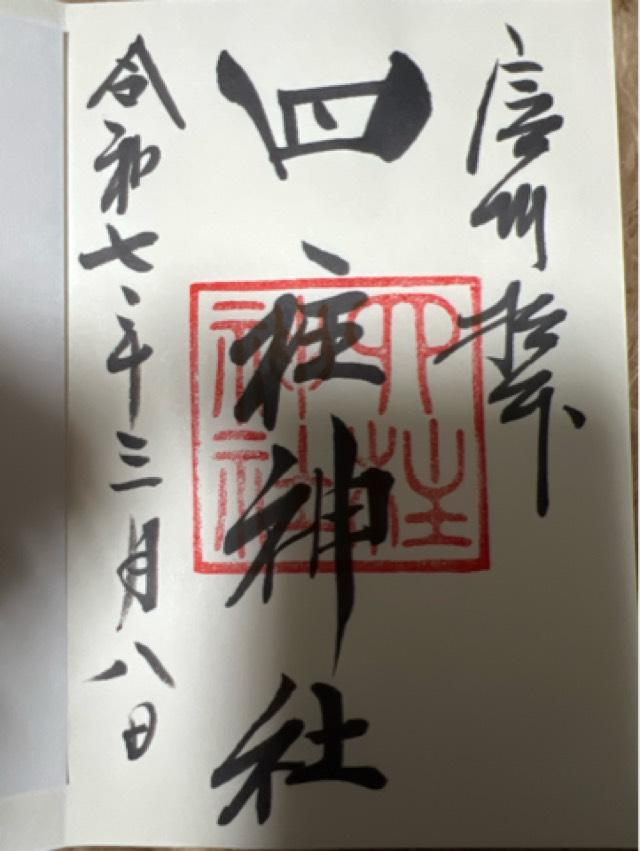 信州松本
四柱神社
四柱
神社
令和七年三月八日